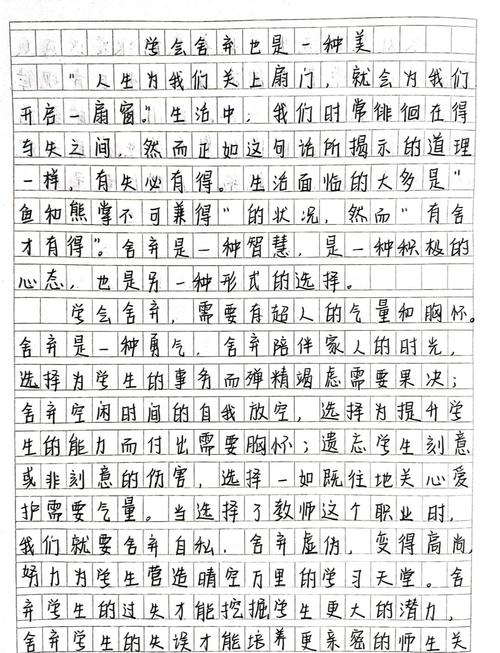 学会舍弃也是一种美
"人生为我们关上扇门，就会为我们
开启一扇窗。"生活中，我们时常徘徊在得
与失之间，然而正如这句话所揭示的道理
一样，有失必有得。生活面临的大多是"
鱼和熊掌不可兼得"的状况，然而"有舍
才有得"。舍弃是一种智慧，是一种积极的
心态，也是另一种形式的选择。
学会舍弃，需要有超人的气量和胸怀。
舍弃是一种勇气，舍弃陪伴家人的时光，
选择为学生的事务而殚精竭虑需要果决；
舍弃空闲时间的自我放空，选择为提升学
生的能力而付出需要胸怀；遗忘学生刻意
或非刻意的伤害，选择一如既往地关心爱
护需要气量。当选择了教师这个职业时，
我们就要舍弃自私，舍弃虚伪，变得高尚，
努力为学生营造晴空万里的学习天堂。舍
弃学生的过失才能挖掘学生更大的潜力，
舍弃学生的失误才能培养更亲密的师生关